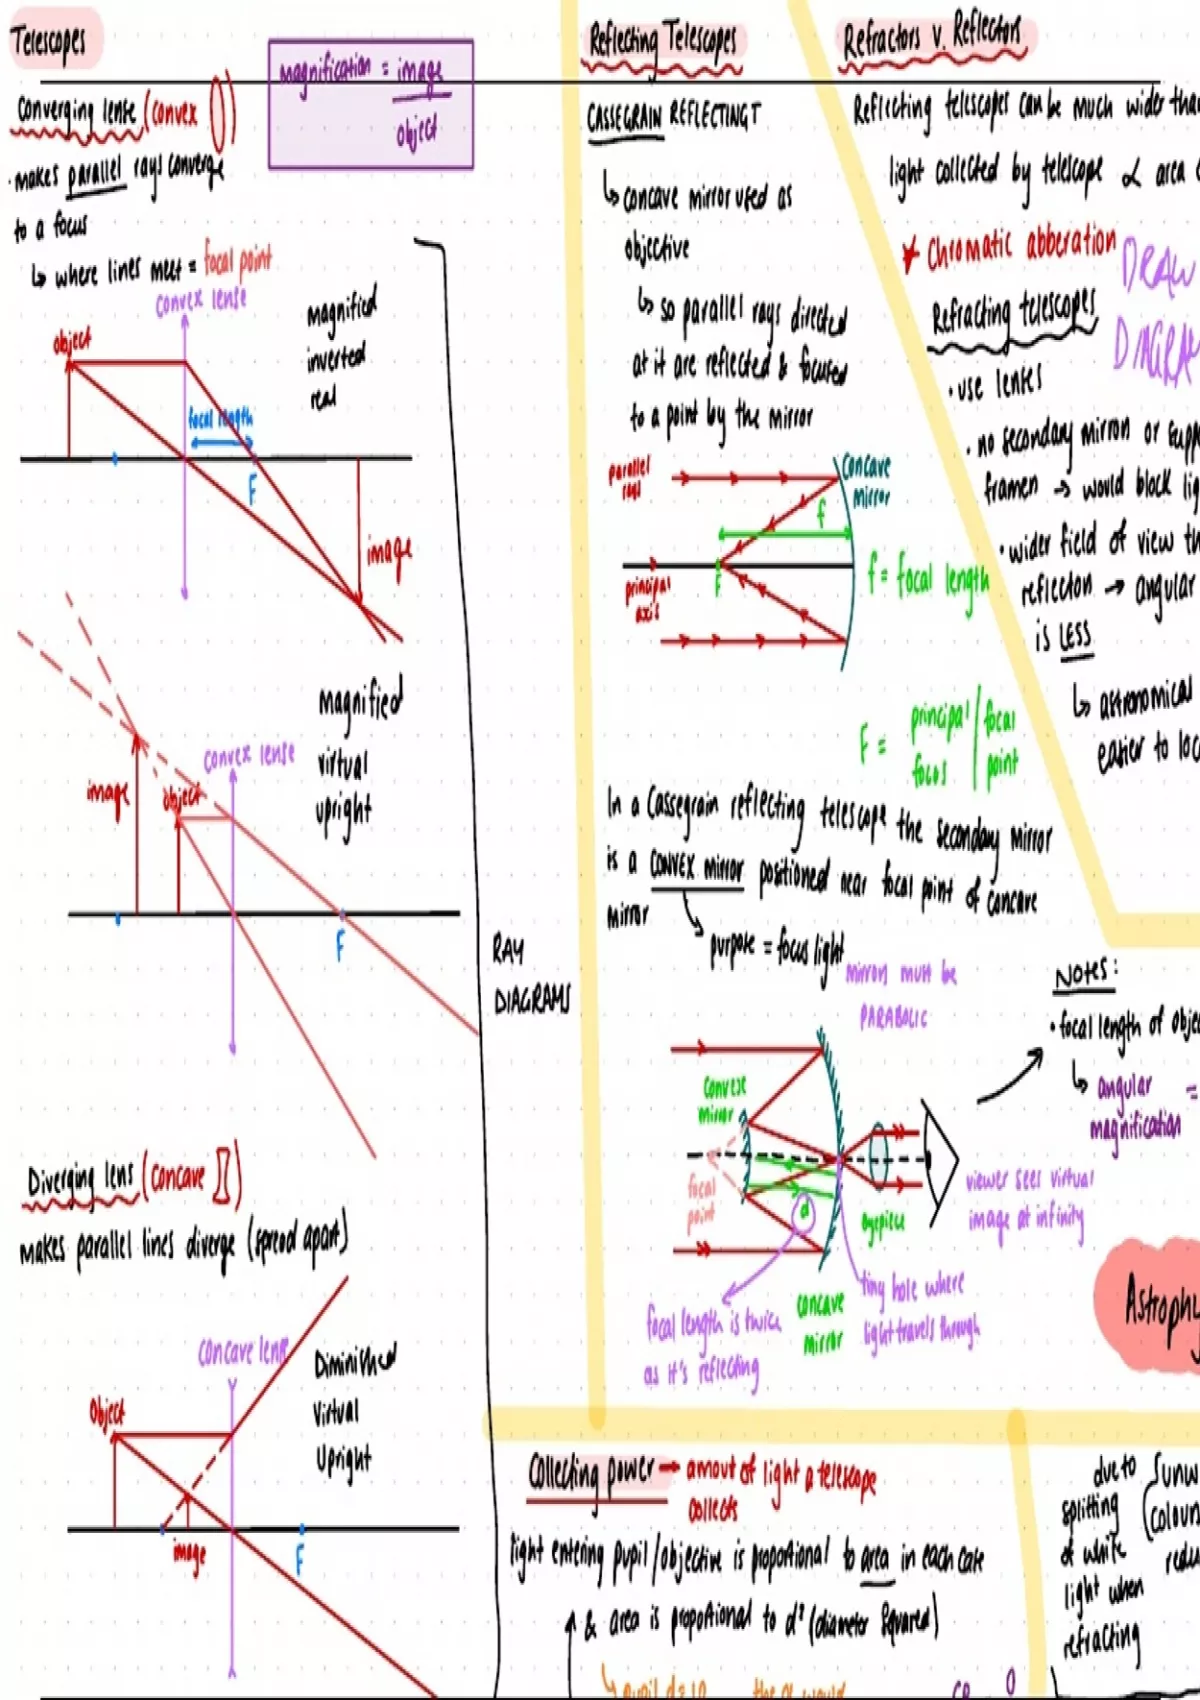 Telescopes
magnification = image
object
Converging lense (convex )
· makes parallel rays converge
to a focus
↳ where lines meet = focal point
convex lense
object
magnified
inverted
real
focal length
F
image
magnified
virtual
upright
convex lense
image
object
F
RAY
DIAGRAMS
Diverging lens (concave )
makes parallel lines diverge (spread apart)
concave lens
Diminished
Virtual
Upright
Object
image
F
Reflecting Telescopes
CASSEGRAIN REFLECTING T
↳ concave mirror used as
objective
↳ so parallel rays directed
at it are reflected & focused
to a point by the mirror
parallel
rays
concave
mirror
f
F
principal
axis
f = focal length
F = principal / focal
focus / point
In a Cassegrain reflecting telescope the secondary mirror
is a CONVEX mirror positioned near focal point of concave
mirror
purpose = focus light
mirrors must be
PARABOLIC
convex
mirror
focal
point
d
eyepiece
viewer sees virtual
image at infinity
focal length is twice
as it's reflecting
concave
mirror
tiny hole where
light travels through
Refractors v. Reflectors
Reflecting telescopes can be much wider than
light collected by telescope α area
* Chromatic abberation
DRAW
DIAGRA
Refracting telescopes
· use lenses
· no secondary mirror or supp
frames → would block lig
· wider field of view th
reflectors → angular
is LESS
↳ astronomical
easier to loc
NOTES:
· focal length of objec
↳ angular =
magnification
Astrophy
Collecting power → amout of light a telescope
collects
light entering pupil/objective is proportional to area in each case
& area is proportional to d² (diameter squared)
↳ pupil d = 10 the would
due to
splitting
of white
light when
refracting
colours
redu